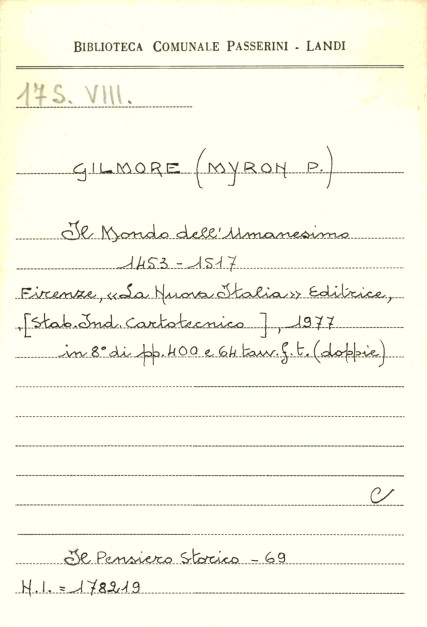 BIBLIOTECA COMUNALE PASSERINI - LANDI
17S. VIII.
GILMORE (MYRON P.)
Il Mondo dell'Umanesimo
1453 - 1517
Firenze, «La Nuova Italia» Editrice,
,[Stab. Ind. Cartotecnico ], 1977
in 8° di pp. 400 e 64 tav. f. t. (doppie)
C
Il Pensiero Storico - 69
N.I. = 178219